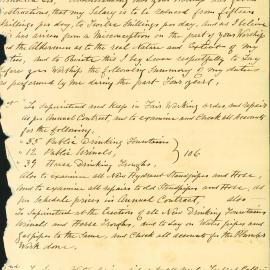 instructions, that my Salary is to be reduced from fifteen
Shillings per day, to Twelve Shillings per day, and as I believe
this has arisen from a Misconception on the part of your Worship
and the Aldermen as to the real Nature and Extent of my
duties, and to Obviate this I beg leave respectfully to Lay
before your Worship the following Summary of my duties
as performed by me during the past Four Years,
1st To Superintend and Keep in Fair Working order, and repair
as per Annual Contract, and to examine and Check all Accounts
for the following,
55 Public Drinking Fountains
12 Public Urinals,
39 Horse Drinking Troughs,
} 106
Also to examine all New Hydrant Standpipes and Hose,
And to examine all repairs to old Standpipes and Hose, as
per Schedule prices in Annual Contract, also
To Superintend at the Erection of all New Drinking Fountains
Urinals and Horse Troughs, and to Lay on Water pipes and
Gaspipes to the Same, and Check all accounts for the Plumbers
Work done.